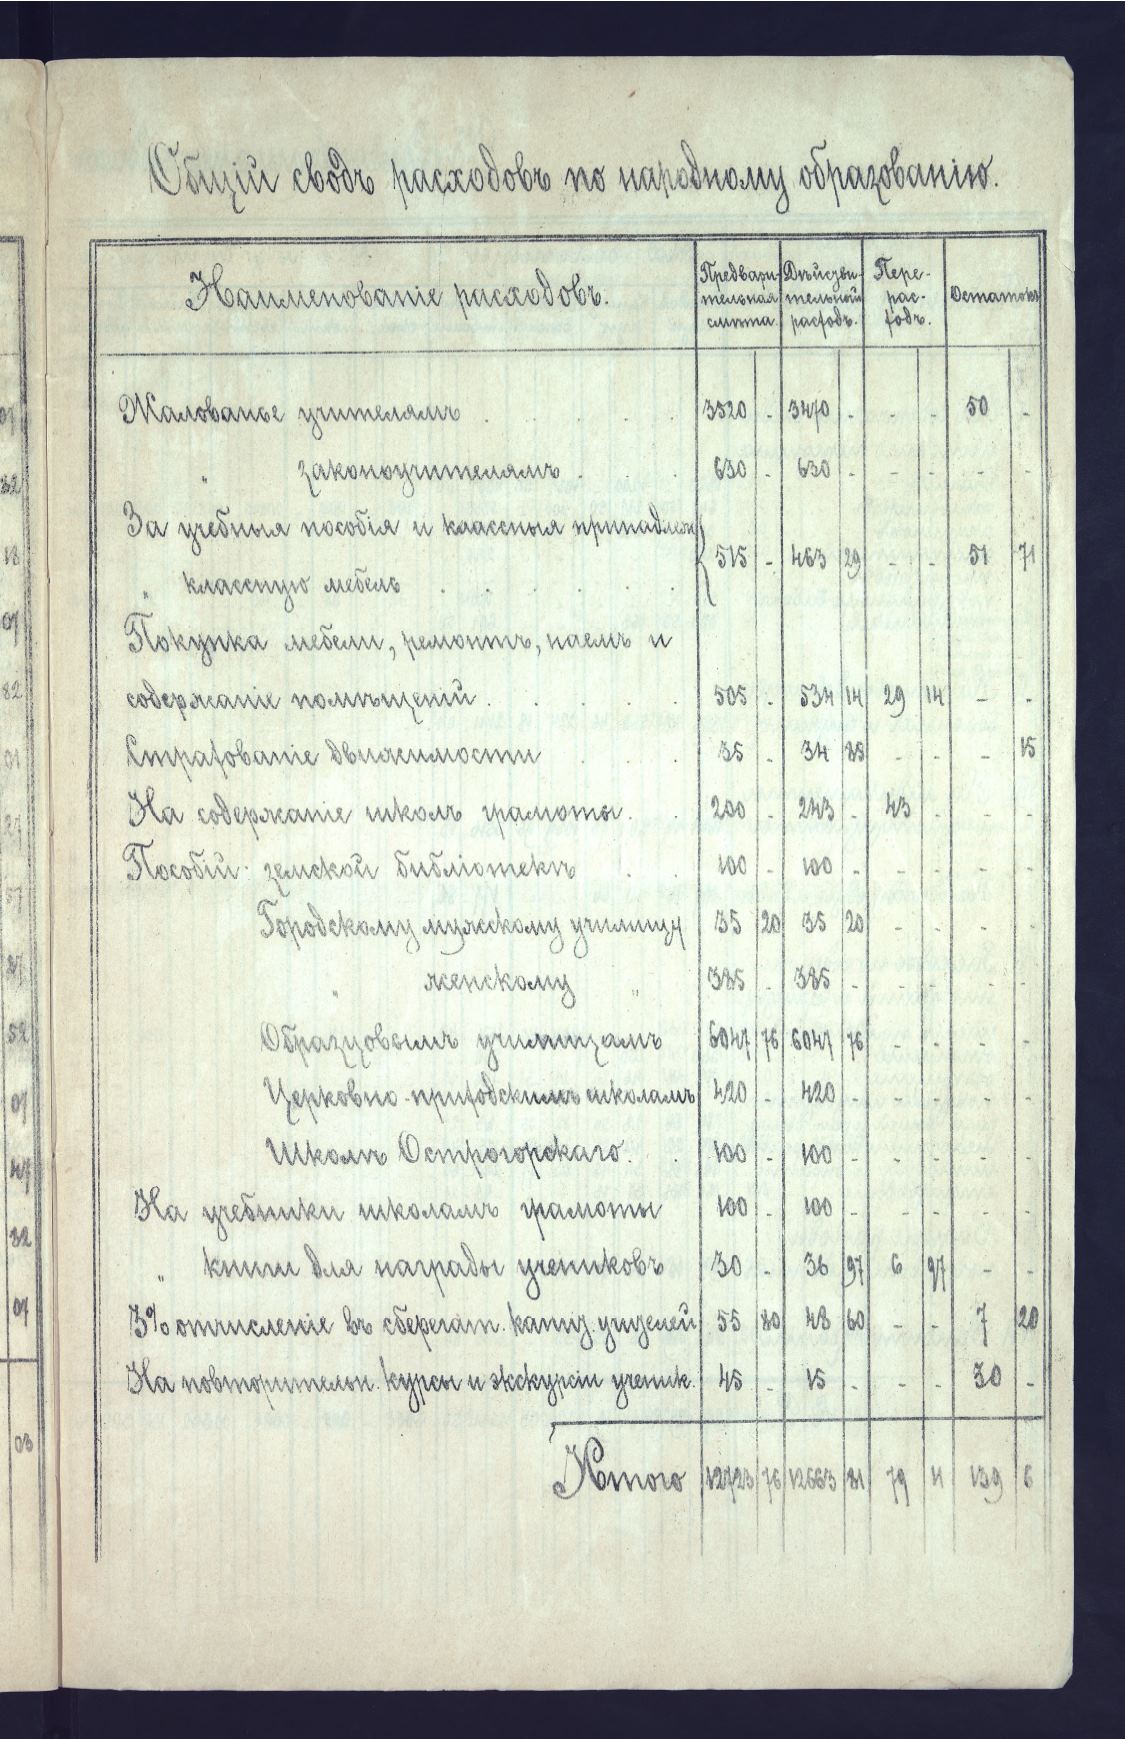 Общій сводъ расходовъ по народному образованію.
Наименованіе расходовъ.
Предвари-тельная смѣта.
Дѣйстви-тельный расходъ.
Пере-рас-ходъ.
Остатокъ
Жалованье учителямъ . . . . 3520 - 3470 - - - 50 -
" законоучителямъ . . . 630 - 630 - - - - -
За учебныя пособія и классныя принадлеж.
515 - 463 29 - - 51 71
" классную мебель . . . . . .
Покупка мебели, ремонтъ, наемъ и
содержаніе помѣщеній . . . . . 505 - 534 14 29 14 - -
Страхованіе движимости . . . 35 - 34 85 - - - 15
На содержаніе школъ грамоты. . 200 - 243 - 43 - - -
Пособій: земской библіотекѣ . . 100 - 100 - - - - -
Городскому мужскому училищу 35 20 35 20 - - - -
" женскому " 385 - 385 - - - - -
Образцовымъ училищамъ 6047 76 6047 76 - - - -
Церковно-приходскимъ школамъ 420 - 420 - - - - -
Школѣ Острогорскаго. . 100 - 100 - - - - -
На учебники школамъ грамоты 100 - 100 - - - - -
" книги для награды учениковъ 30 - 36 97 6 97 - -
3% отчисленіе въ сберегат. кассу учителей 55 80 48 60 - - 7 20
На повторительн. курсы и экскурсіи ученик. 45 - 15 - - - 30 -
Итого 12723 76 12663 81 79 11 139 6
01
32
18
07
82
01
27
57
27
52
07
47
32
07
03